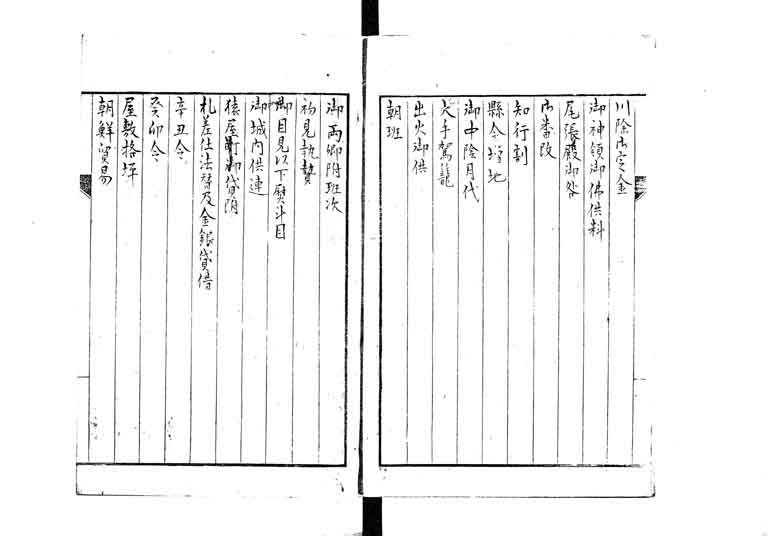 川除御定金
御神領御佛供料
尾張殿御咎
御番改
知行割
縣令増地
御中陰月代
大手駕籠
出火御供
朝班
御両卿附班次
初見執贄
御目見以下熨斗目
御城内供連
猿屋町御貸附
札差仕法替及金銀貸借
辛丑令
癸卯令
屋敷格坪
朝鮮貿易